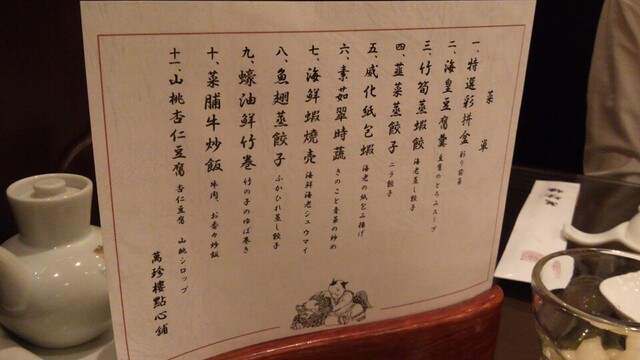 菜單
一、特選彩拼盒 彩り前菜
二、海皇豆腐羹 豆腐のとろみスープ
三、竹筍蒸蝦餃 海老蒸し餃子
四、韮菜蒸餃子 ニラ餃子
五、威化紙包蝦 海老の紙包み揚げ
六、素茹翠時蔬 きのこと青菜の炒め
七、海鮮蝦燒売 海鮮海老シュウマイ
八、魚翅蒸餃子 ふかひれ蒸し餃子
九、蠔油鮮竹巻 竹の子のゆば巻き
十、菜脯牛炒飯 牛肉、お香々炒飯
十一、山桃杏仁豆腐 杏仁豆腐 山桃シロップ
萬珍樓點心舗